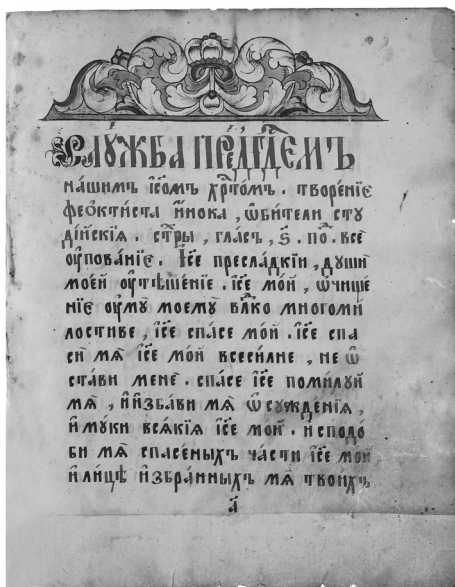 Слꙋ́жба пред̾ гд҇емъ
на́шимъ і҆с҃омъ хр҇то́мъ . творе́нїе
фео́ктиста и҆́нока , ѡ҆би́тели стꙋ
ді́йскїѧ . ст҇ры , гла́съ , ѕ҃ . по . все
ᲂу҆пова́нїе . І҆с҃е пресла́дкїи , дꙋшѝ
мое́й ᲂу҆тѣше́нїе . і҆с҃е мо́й , ѡ҆чище́
нїе ᲂу҆мꙋ̀ моемꙋ̀ вл҃ко многоми́
лостиве , і҆с҃е спа́се мо́й . і҆с҃е спа
сѝ мѧ̀ і҆с҃е мо́й всеси́лне , не ѿ
ста́ви менѐ . спа́се і҆с҃е поми́лꙋй
мѧ̀ , и҆ и҆зба́ви мѧ̀ ѿ сꙋжде́нїѧ ,
и҆ мꙋ́ки всѧ́кїѧ і҆с҃е мо́й . и҆ сподо́
би мѧ̀ спасе́ныхъ ча́сти і҆с҃е мо́й
и҆ ли́цѣ и҆збра́нныхъ мѧ̀ твои́хъ ,
а҃